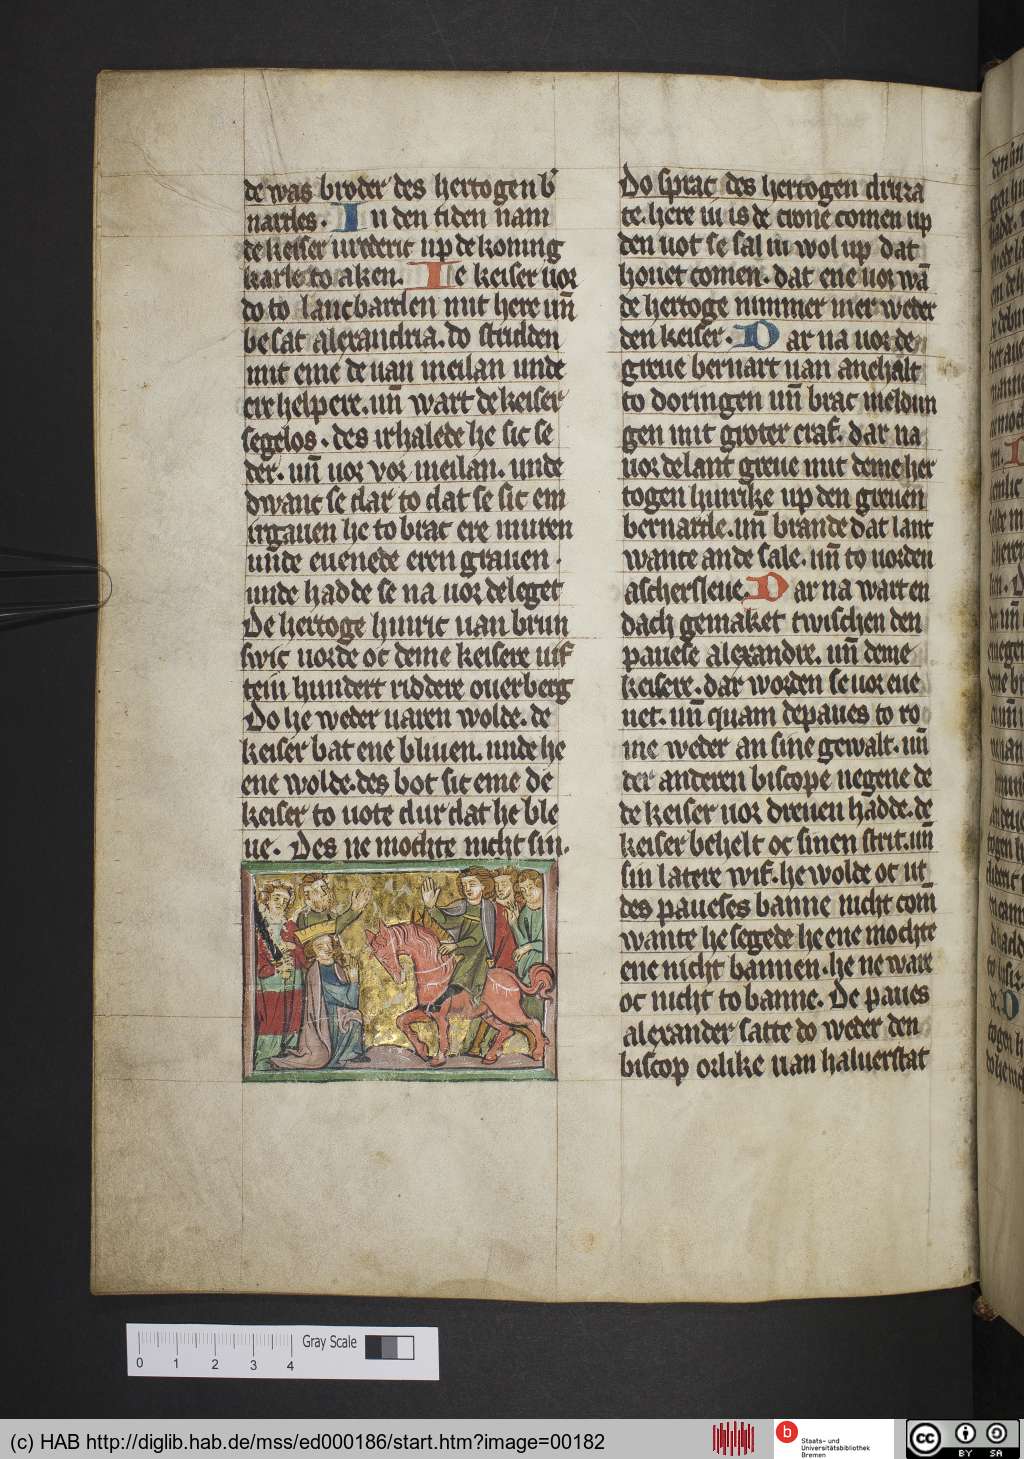 de was broder des hertogen b̾
nartes. In den tiden nam
de keiser urederic up de koning
karle to aken. Te keiser uor
do to lancbarden mit here uñ
besat alexandria. do stridden
mit eme de uan meilan unde
ere helpere. uñ wart de keiser
segelos. des irhalede he sic se
der. uñ uor vor meilan. unde
dwanc se dar to dat se sic em
irgauen he to brac ere muren
unde euenede eren grauen.
unde hadde se na uor deleget
De hertoge hinric uan brun
swic uorde oc deme keisere uif
tein hundert riddere ouerberg
Do he weder uaren wolde. de
keiser bat ene bliuen. unde he
ene wolde. des bot sic eme de
keiser to uote dur dat he ble
ue. Des ne mochte nicht sin.
Do sprac des hertogen druza
te. here iu is de crone comen up
den uot se sal iu wol up dat
houet comen. dat ene uor wā
de hertoge nimmer mer weder
den keiser. Dar na uor de
greue bernart uan anehalt
to doringen uñ brac meldun
gen mit groter craf. dar na
uor de lant greue mit deme her
togen hinrike up den greuen
bernarde. uñ brande dat lant
wante an de sale. uñ to uorden
aschersleue. Dar na wart en
dach gemaket twischen den
pauese alexandre. uñ deme
keisere. dar worden se uor eue
net. uñ quam de paues to ro
me weder an sine gewalt. uñ
der anderen biscope negene de
de keiser uor dreuen hadde. de
keiser behelt oc sinen strit. uñ
sin latere wif. he wolde oc ut
des paueses banne nicht com̄
wante he segede he ene mochte
ene nicht bannen. he ne ware
oc nicht to banne. De paues
alexander satte do weder den
biscop orlike uan haluerstat
0 1 2 3 4
Gray Scale
(c) HAB http://diglib.hab.de/mss/ed000186/start.htm?image=00182
b
Staats- und
Universitätsbibliothek
Bremen
cc
BY SA